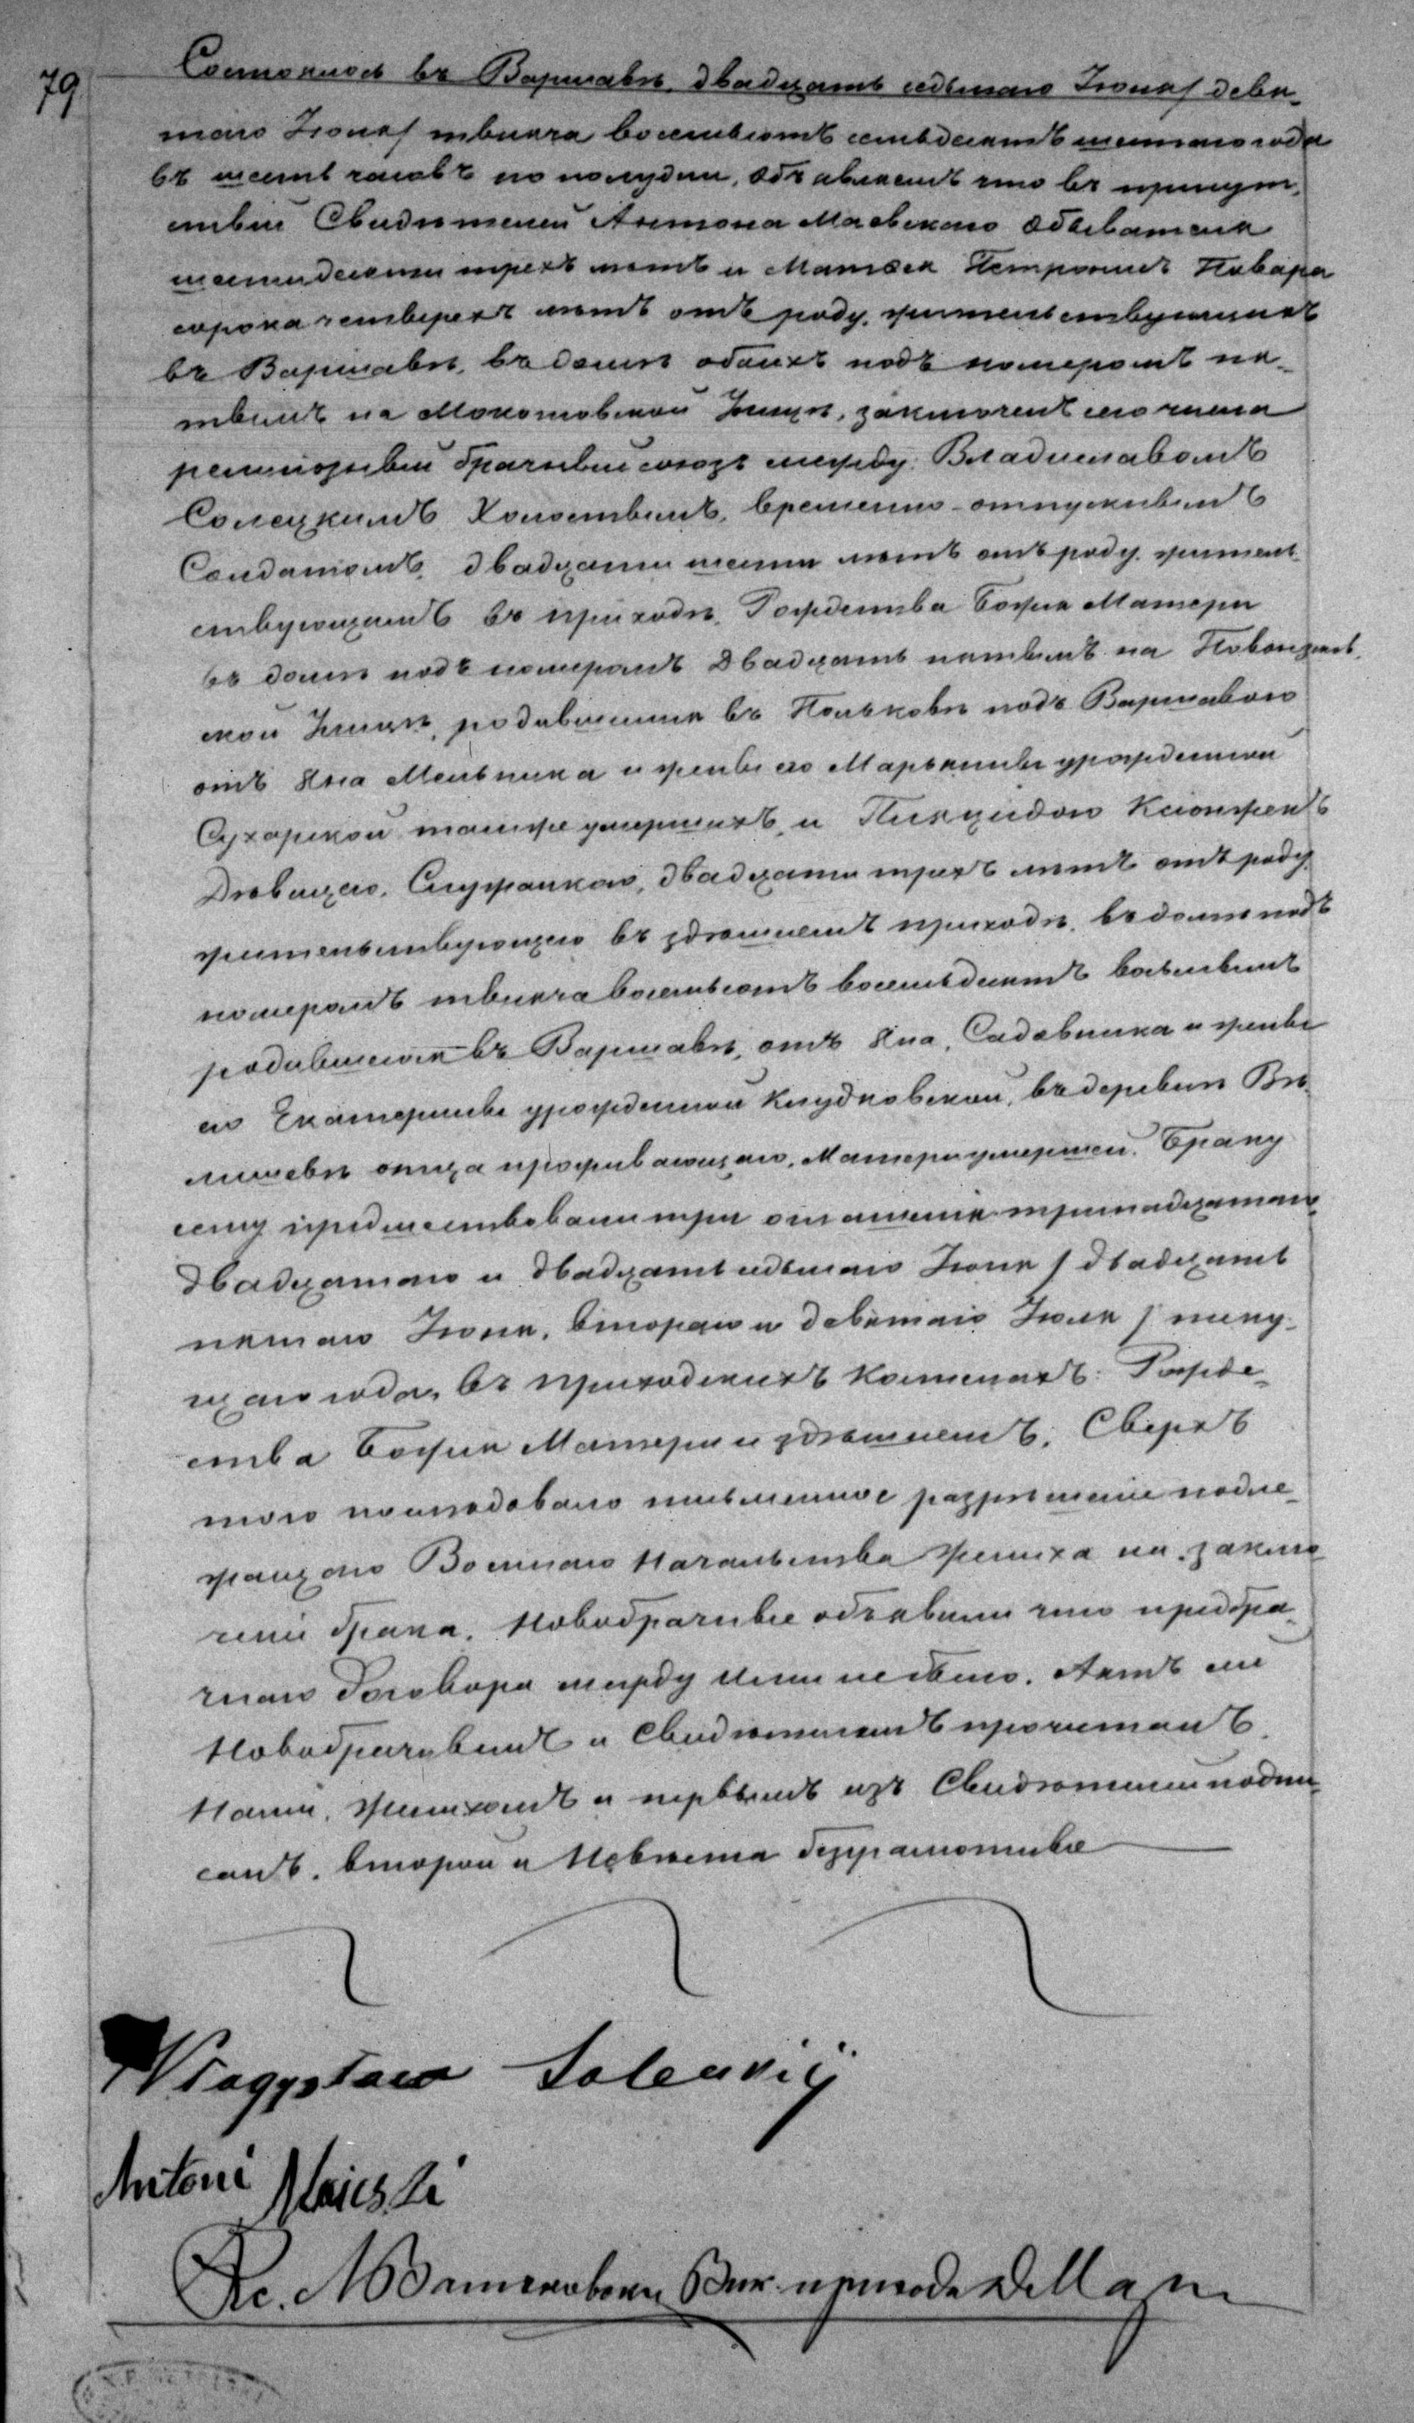 79
Состоялось въ Варшавѣ, двадцать седьмаго Іюня/девя-
таго Іюля/ тысяча восемьсотъ семьдесятъ шестаго года
въ шесть часовъ по полудни. Объявляемъ что въ присут-
ствіи Свидѣтелей Антона Маевскаго Обывателя
шестидесяти трехъ лѣтъ и Матвея Петрожикъ Повара
сорока четверехъ лѣтъ отъ роду, жительствующихъ
въ Варшавѣ, въ домѣ обоихъ подъ номеромъ пя-
тымъ на Мокотовской Улицѣ, заключенъ сего числа
религіозный брачный союзъ между: Владиславомъ
Солецкимъ Холостымъ, временно-отпускнымъ
Солдатомъ, двадцати шести лѣтъ отъ роду, житель-
ствующимъ въ приходѣ, Рождества Божія Матери
въ домѣ подъ номеромъ двадцать пятымъ на Повонзков-
ской Улицѣ, родившимся въ Польковѣ подъ Варшавою
отъ Яна Мельника и жены его Марьянны урожденной
Сухарской таже умершихъ, и Плякцидою Ксіонжекъ
Дѣвицею, Служанкою, двадцати трехъ лѣтъ отъ роду,
жительствующею въ здѣшнемъ приходѣ, въ домѣ подъ
номеромъ тысяча восемьсотъ восемьдесятъ восьмымъ
родившеюся въ Варшавѣ, отъ Яна, Садовника и жены
его Екатерины урожденной Клудковской, въ деревнѣ Вѣ-
лишевѣ отца проживающаго, Матери умершей. Браку
сему предшествовали три оглашенія тринадцатаго,
двадцатаго и двадцать седьмаго Іюня / двадцать
пятаго Іюня, втораго и девятаго Іюля / теку-
щаго года, въ приходскихъ костелахъ: Рожде-
ства Божія Матери и здѣшнемъ. Сверхъ
того послѣдовало письменное разрѣшеніе подле-
жащаго Военнаго Начальства жениха на заклю-
ченіе брака. Новобрачные объявили что предбра-
чнаго Договора между ними не было. Актъ сей
Новобрачнымъ и Свидѣтелямъ прочитанъ,
Нами, женихомъ и первымъ изъ Свидѣтелей подпи-
санъ. Второй и Невѣста безграмотные
Władysław Soleckij
Antoni Maiewski
Кс. Вик. прихода